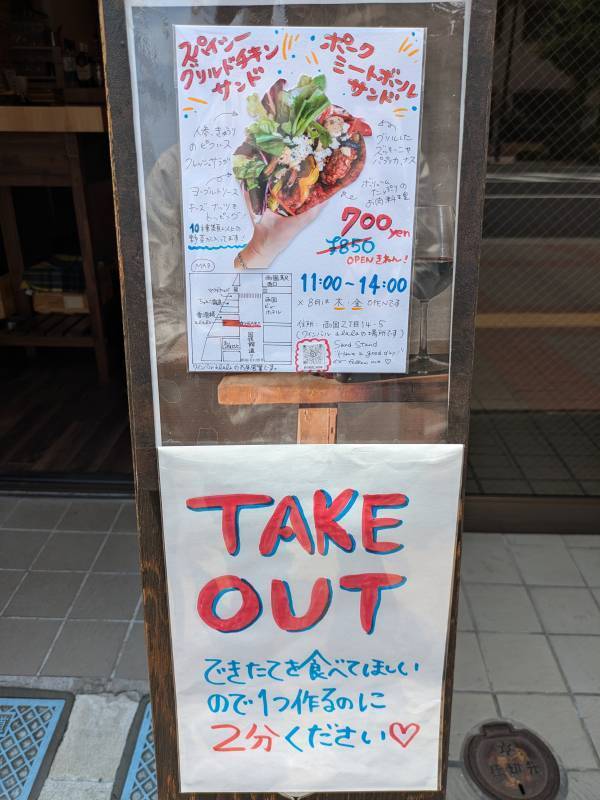 スパイシー
グリルドチキン
サンド
ポーク
ミートボール
サンド
人参、きゅうり
のピクルス
フレッシュサラダ
ヨーグルトソース
チーズ ナッツを
トッピング!
10種類以上の
野菜が入ってます!
グリルした
ズッキーニや
パプリカ、ナス
ボリューム
たっぷりの
お肉料理
700yen
¥850
OPENきねん!
MAP
両国駅
西口
両国
ビュー
ホテル
11:00~14:00
× 8月は 木・金 OPENです
住所:両国2丁目14-5
(ワインバル alalaの場所です)
Sand Stand
Have a good day!
follow me ♡
TAKE
OUT
できたてを食べてほしい
ので1つ作るのに
2分ください♡